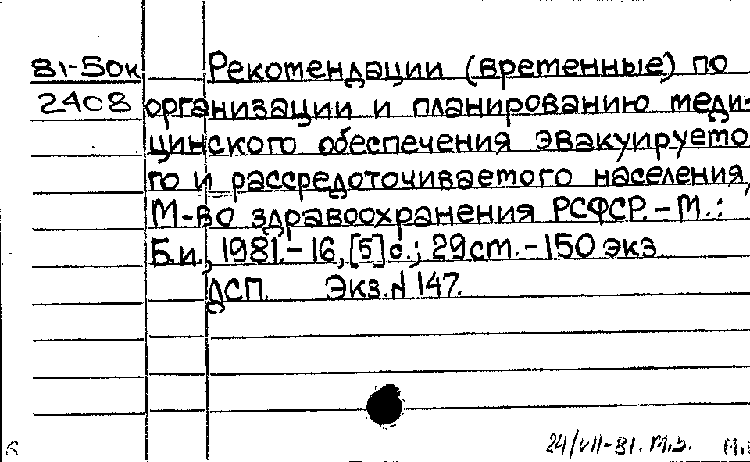 81-50к Рекомендации (временные) по
2408 организации и планированию меди-
цинского обеспечения эвакуируемо
го и рассредоточиваемого населения,
М-во здравоохранения РСФСР. - М.:
Б.и., 1981. - 16, [5] с.; 29 ст. - 150 экз
ДСП. Экз. N 147.
24/VII-81.